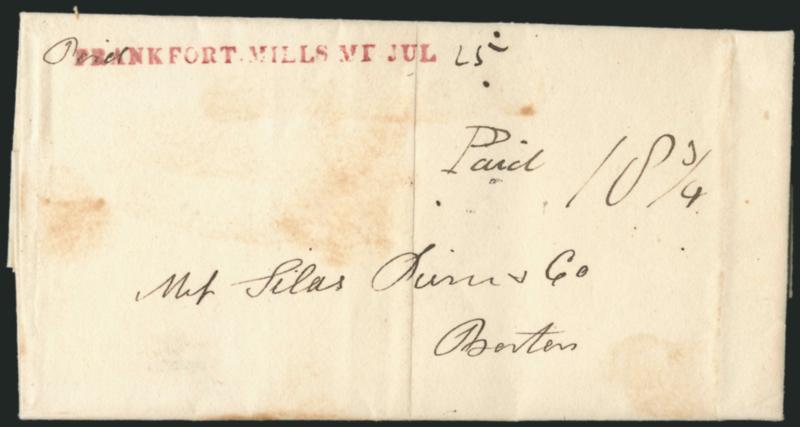 Paid FRANKFORT.MILLS ME JUL 25
Paid 18 3/4
Silas & Co
Boston